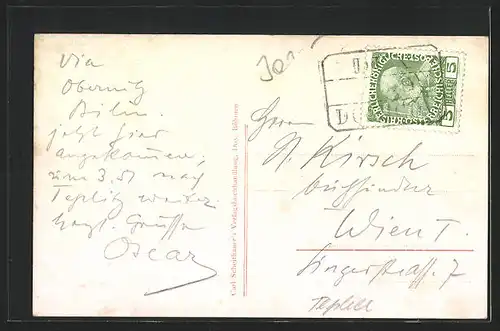 via
Obernitz
Bilin.
jetzt hier
angekommen,
um 3.51 nach
Teplitz weiter.
herzl. Grüsse
Oscar
Carl Scheithauer's Verlagsbuchhandlung, Dux, Böhmen
Herrn
A. Kirsch
Buchbinder
Wien I.
Singerstrasse 7
Teplitz
5 HELLER 5